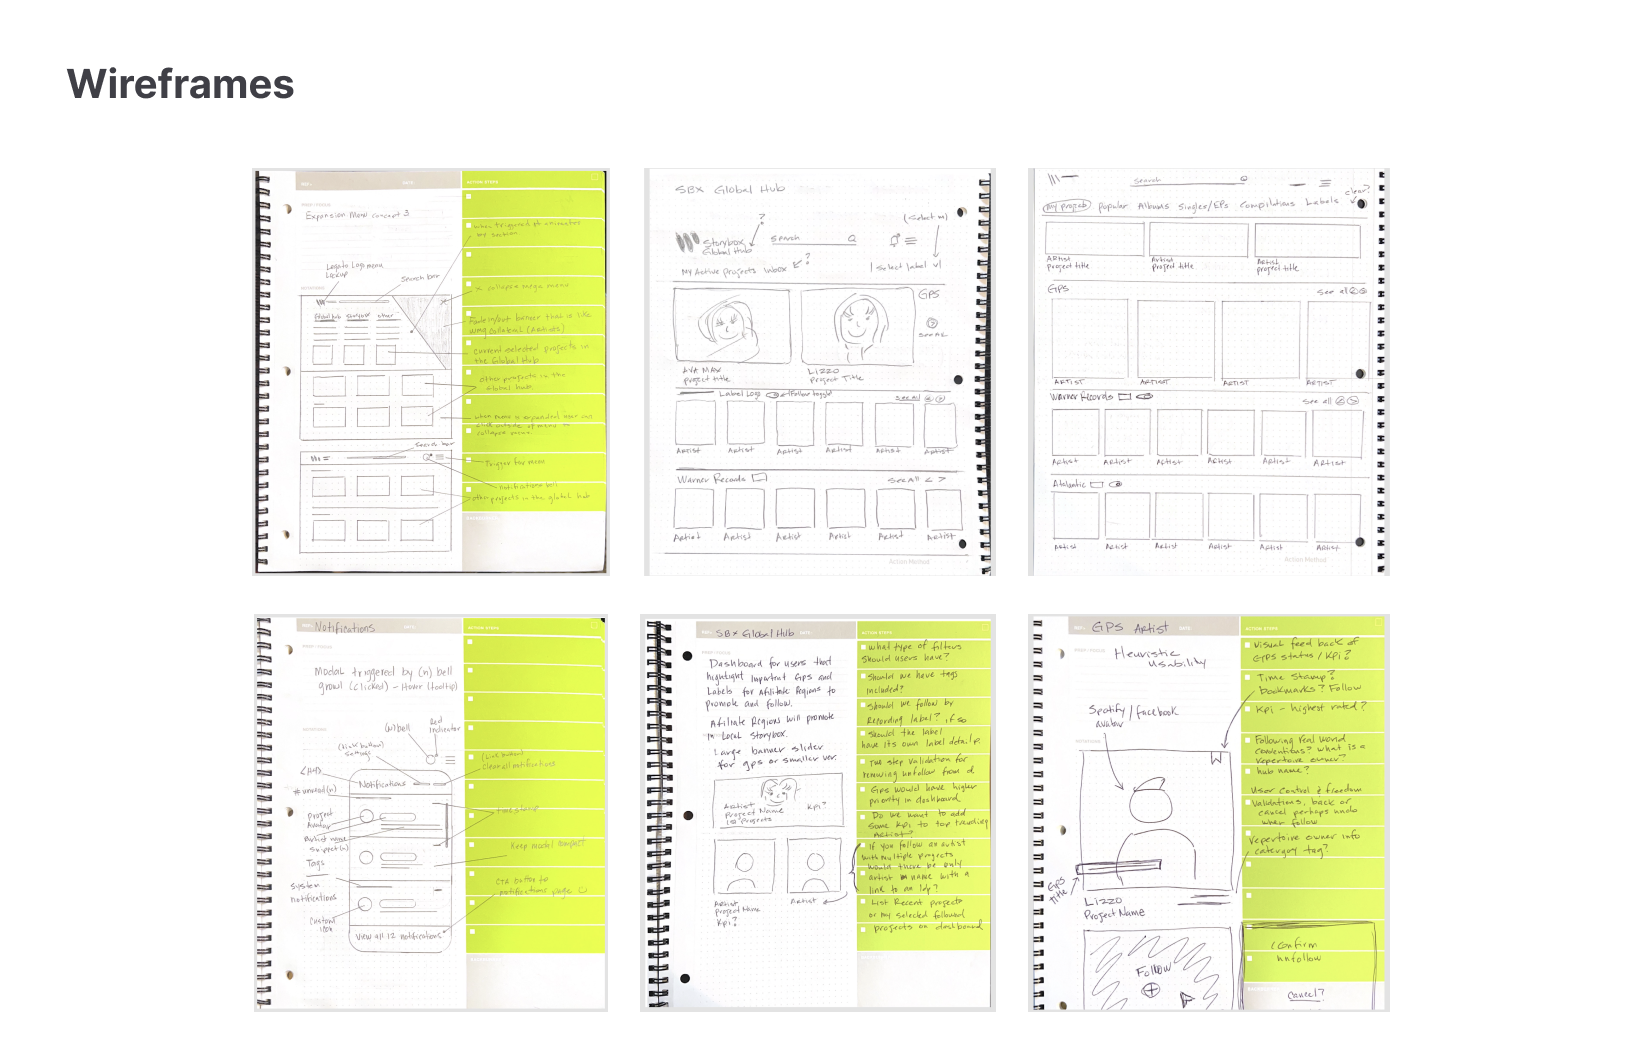 Wireframes
ACTION STEPS
Expansion Menu concept 3
when triggered it animates
Logo to Logo menu
Lockup
Search bar
x collapse mega menu
Fade in/out banner that is like
wmg collateral (Artists)
Global hub Storybox other
current selected projects in
the Global Hub
other projects in the
Global hub
when menu is expanded user can
click outside of menu to
collapse menu
Search bar
Trigger for menu
notifications bell
other projects in the global hub
SBX Global Hub
?
(Select m)
Storybox
Global Hub
Search
My Active Projects Inbox ?
Select label
GPS
See All
AVA MAX
project title
Lizzo
Project Title
Label Logo Follow toggle
See all
Artist Artist Artist Artist Artist Artist
Warner Records
See All < >
Artist Artist Artist Artist Artist Artist
Action Method
Search
clear?
My project Popular Albums Singles/EPs Compilations Labels
Artist
project title
Artist
project title
Artist
project title
GPS
See all
ARTIST ARTIST ARTIST ARTIST
Warner Records
See all
Artist Artist Artist Artist Artist Artist
Atalantic
Artist Artist Artist Artist Artist Artist
Action Method
Notifications
DATE:
ACTION STEPS
Modal triggered by (n) bell
growl (clicked) - Hover (tooltip)
(n) bell
Red
indicator
(link button)
Settings
(Link button)
clear all notifications
Notifications
# unread (n)
timestamp
Project
Avatar
Artist name
Snippet (n)
Tags
Keep modal compact
System
notifications
CTA button to
notifications page
Custom
icon
View all 12 notifications
SBX Global Hub
DATE:
ACTION STEPS
Dashboard for users that
hightlight important Gps and
Labels for Afilitate Regions to
promote and follow.
Afiliate Regions will promote
in Local Storybox.
Large banner slider
for gps or smaller ver.
Artist
Project Name
Kpi?
Artist
Project Name
Kpi?
Artist
What type of filters
should users have?
Should we have tags
included?
Should we follow by
Recording label? if so
Should the label
have its own label
Two step validation for
removing unfollow from
Gps would have higher
priority in dashboard
Do we want to add
some Kpi to top trending
Artist?
If you follow an artist
with multiple projects
would there be only
artist name with a
link to an ldp?
List Recent projects
or my selected followed
projects on dashboard
GPS Artist
DATE:
ACTION STEPS
Heuristic
Usability
Spotify / facebook
avatar
Gps
title
Lizzo
Project Name
Follow
Visual feed back of
GPS status / Kpi?
Time Stamp?
bookmarks? Follow
Kpi - highest rated?
Following real world
conventions? what is a
repertoire owner?
hub name?
User control & freedom
Validations, back or
cancel perhaps undo
when follow
repertoire owner info
category tag?
Confirm
unfollow
Cancel?